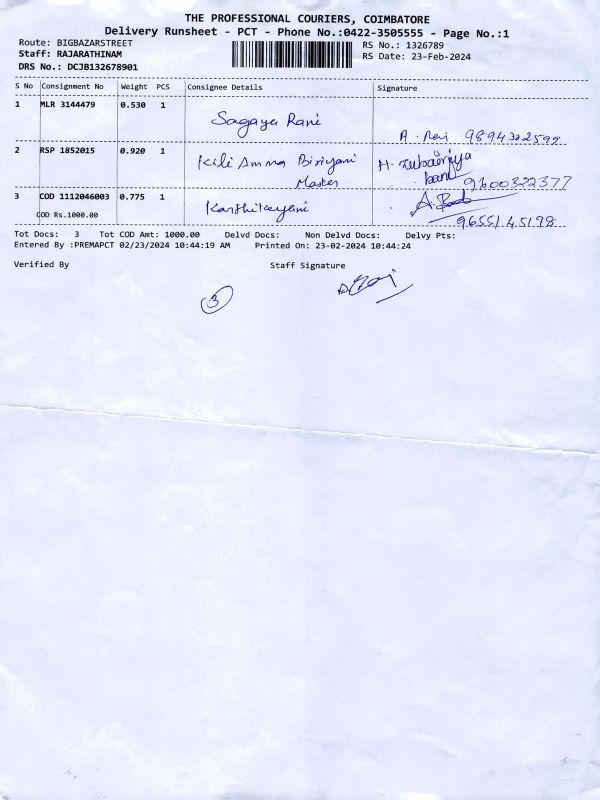 THE PROFESSIONAL COURIERS, COIMBATORE
Delivery Runsheet - PCT - Phone No.:0422-3505555 - Page No.:1
Route: BIGBAZARSTREET
RS No.: 1326789
Staff: RAJARATHINAM
RS Date: 23-Feb-2024
DRS No.: DCJB132678901
S No Consignment No Weight PCS Consignee Details Signature
1 MLR 3144479 0.530 1
Sagaya Rani
A. 9894302599
2 RSP 1852015 0.920 1
Kili Amma Biriyani
Master
H.
9600332377
3 COD 1112046003 0.775 1
Karthikayani
COD Rs.1000.00
9655145198
Tot Docs: 3 Tot COD Amt: 1000.00 Delvd Docs: Non Delvd Docs: Delvy Pts:
Entered By :PREMAPCT 02/23/2024 10:44:19 AM Printed On: 23-02-2024 10:44:24
Verified By Staff Signature
3